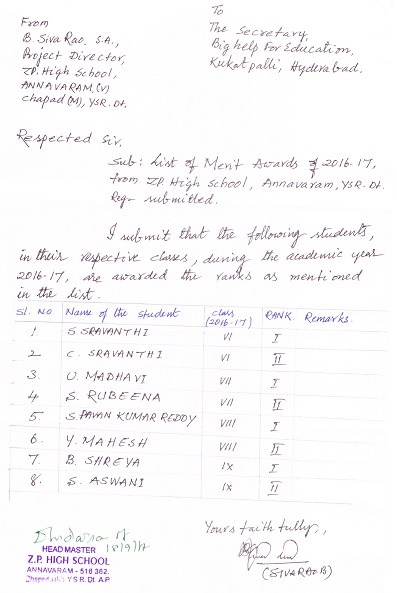 From
B. Siva Rao. S.A.,
Project Director,
ZP. High School,
ANNAVARAM, (V)
Chapad (M), YSR. Dt.
To
The Secretary,
Big help For Education,
Kukatpalli, Hyderabad.
Respected Sir,
Sub: List of Merit Awards of 2016-17,
from ZP. High School, Annavaram, YSR. Dt.
Reg- submitted.
I submit that the following students,
in their respective classes, during the academic year
2016-17, are awarded the ranks as mentioned
in the list.
Sl. No. Name of the student, class (2016-17) RANK Remarks
1 S. SRAVANTHI VI I
2 C. SRAVANTHI VI II
3. U. MADHAVI VII I
4 S. RUBEENA VII II
5. S. PAVAN KUMAR REDDY VIII I
6. Y. MAHESH VIII II
7. B. SHREYA IX I
8. S. ASWANI IX II
Yours faithfully,
(SIVARAO B)
HEAD MASTER
Z.P. HIGH SCHOOL
ANNAVARAM - 516 362.
Y.S.R. Dt. A.P